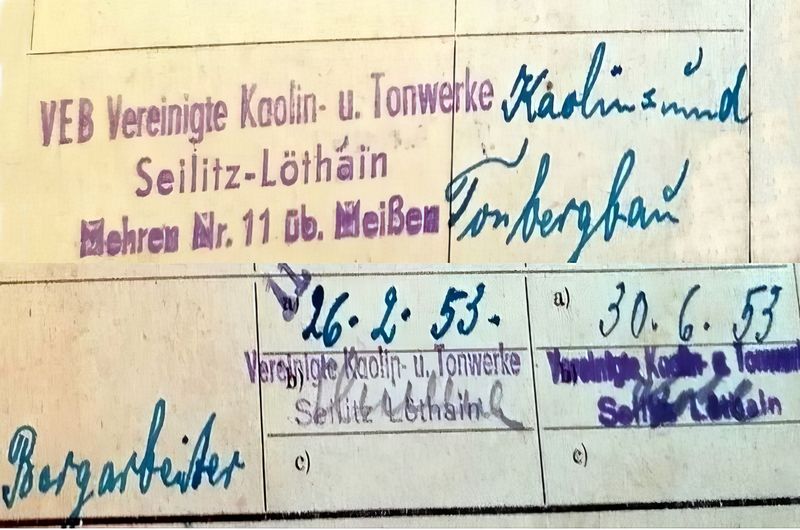 VEB Vereinigte Kaolin- u. Tonwerke Kaolin= und
Seilitz-Löthain
Mehren Nr. 11 üb. Meißen Tonbergbau
a) 26. 2. 53. a) 30. 6. 53
Vereinigte Kaolin- u. Tonwerke Vereinigte Kaolin- u. Tonwerke
b) b)
Seilitz Löthain Seilitz Löthain
Bergarbeiter c) c)